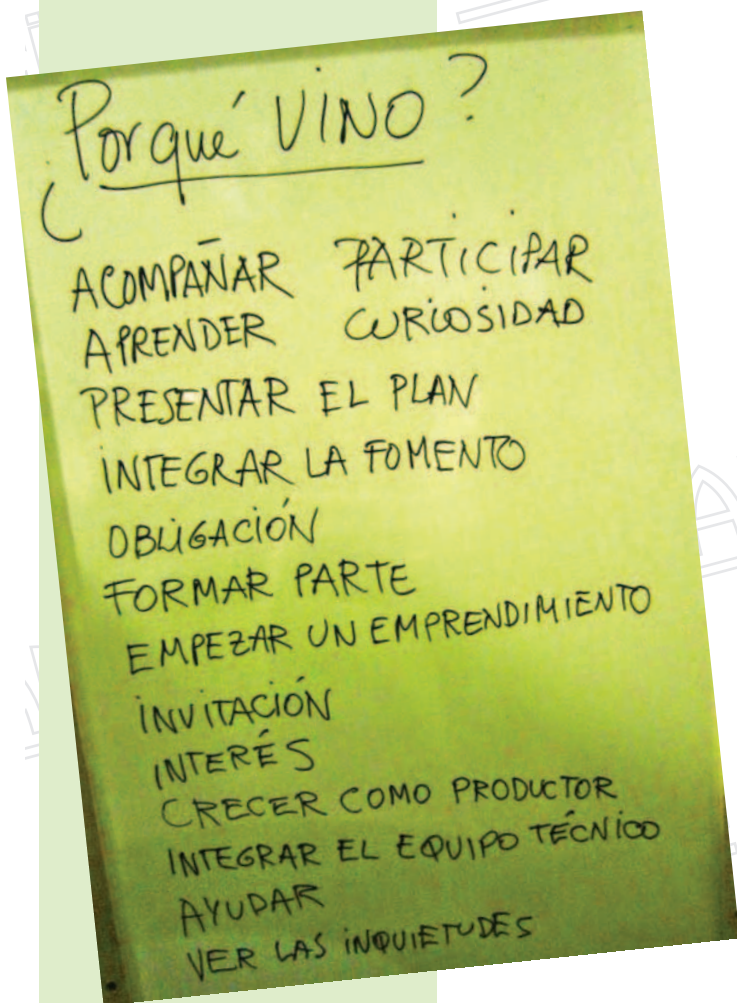 ¿Porqué VINO?
ACOMPAÑAR PARTICIPAR
APRENDER CURIOSIDAD
PRESENTAR EL PLAN
INTEGRAR LA FOMENTO
OBLIGACIÓN
FORMAR PARTE
EMPEZAR UN EMPRENDIMIENTO
INVITACIÓN
INTERÉS
CRECER COMO PRODUCTOR
INTEGRAR EL EQUIPO TÉCNICO
AYUDAR
VER LAS INQUIETUDES